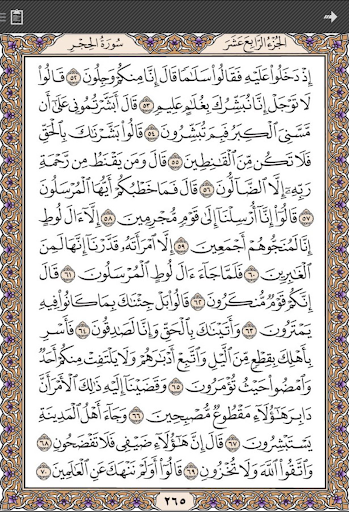 سُورَةُ الحِجْرِ الجُزْءُ الرَّابِعَ عَشَرَ
إِذْ دَخَلُوا۟ عَلَيْهِ فَقَالُوا۟ سَلَٰمًا قَالَ إِنَّا مِنكُمْ وَجِلُونَ ٥٢ قَالُوا۟
لَا تَوْجَلْ إِنَّا نُبَشِّرُكَ بِغُلَٰمٍ عَلِيمٍ ٥٣ قَالَ أَبَشَّرْتُمُونِى عَلَىٰٓ أَن
مَّسَّنِىَ ٱلْكِبَرُ فَبِمَ تُبَشِّرُونَ ٥٤ قَالُوا۟ بَشَّرْنَٰكَ بِٱلْحَقِّ
فَلَا تَكُن مِّنَ ٱلْقَٰنِطِينَ ٥٥ قَالَ وَمَن يَقْنَطُ مِن رَّحْمَةِ
رَبِّهِۦٓ إِلَّا ٱلضَّآلُّونَ ٥٦ قَالَ فَمَا خَطْبُكُمْ أَيُّهَا ٱلْمُرْسَلُونَ
٥٧ قَالُوٓا۟ إِنَّآ أُرْسِلْنَآ إِلَىٰ قَوْمٍ مُّجْرِمِينَ ٥٨ إِلَّآ ءَالَ لُوطٍ
إِنَّا لَمُنَجُّوهُمْ أَجْمَعِينَ ٥٩ إِلَّا ٱمْرَأَتَهُۥ قَدَّرْنَآ إِنَّهَا لَمِنَ
ٱلْغَٰبِرِينَ ٦٠ فَلَمَّا جَآءَ ءَالَ لُوطٍ ٱلْمُرْسَلُونَ ٦١ قَالَ
إِنَّكُمْ قَوْمٌ مُّنكَرُونَ ٦٢ قَالُوا۟ بَلْ جِئْنَٰكَ بِمَا كَانُوا۟ فِيهِ
يَمْتَرُونَ ٦٣ وَأَتَيْنَٰكَ بِٱلْحَقِّ وَإِنَّا لَصَٰدِقُونَ ٦٤ فَأَسْرِ
بِأَهْلِكَ بِقِطْعٍ مِّنَ ٱلَّيْلِ وَٱتَّبِعْ أَدْبَٰرَهُمْ وَلَا يَلْتَفِتْ مِنكُمْ أَحَدٌ
وَٱمْضُوا۟ حَيْثُ تُؤْمَرُونَ ٦٥ وَقَضَيْنَآ إِلَيْهِ ذَٰلِكَ ٱلْأَمْرَ أَنَّ
دَابِرَ هَٰٓؤُلَآءِ مَقْطُوعٌ مُّصْبِحِينَ ٦٦ وَجَآءَ أَهْلُ ٱلْمَدِينَةِ
يَسْتَبْشِرُونَ ٦٧ قَالَ إِنَّ هَٰٓؤُلَآءِ ضَيْفِى فَلَا تَفْضَحُونِ ٦٨
وَٱتَّقُوا۟ ٱللَّهَ وَلَا تُخْزُونِ ٦٩ قَالُوٓا۟ أَوَلَمْ نَنْهَكَ عَنِ ٱلْعَٰلَمِينَ ٧٠
٢٦٥